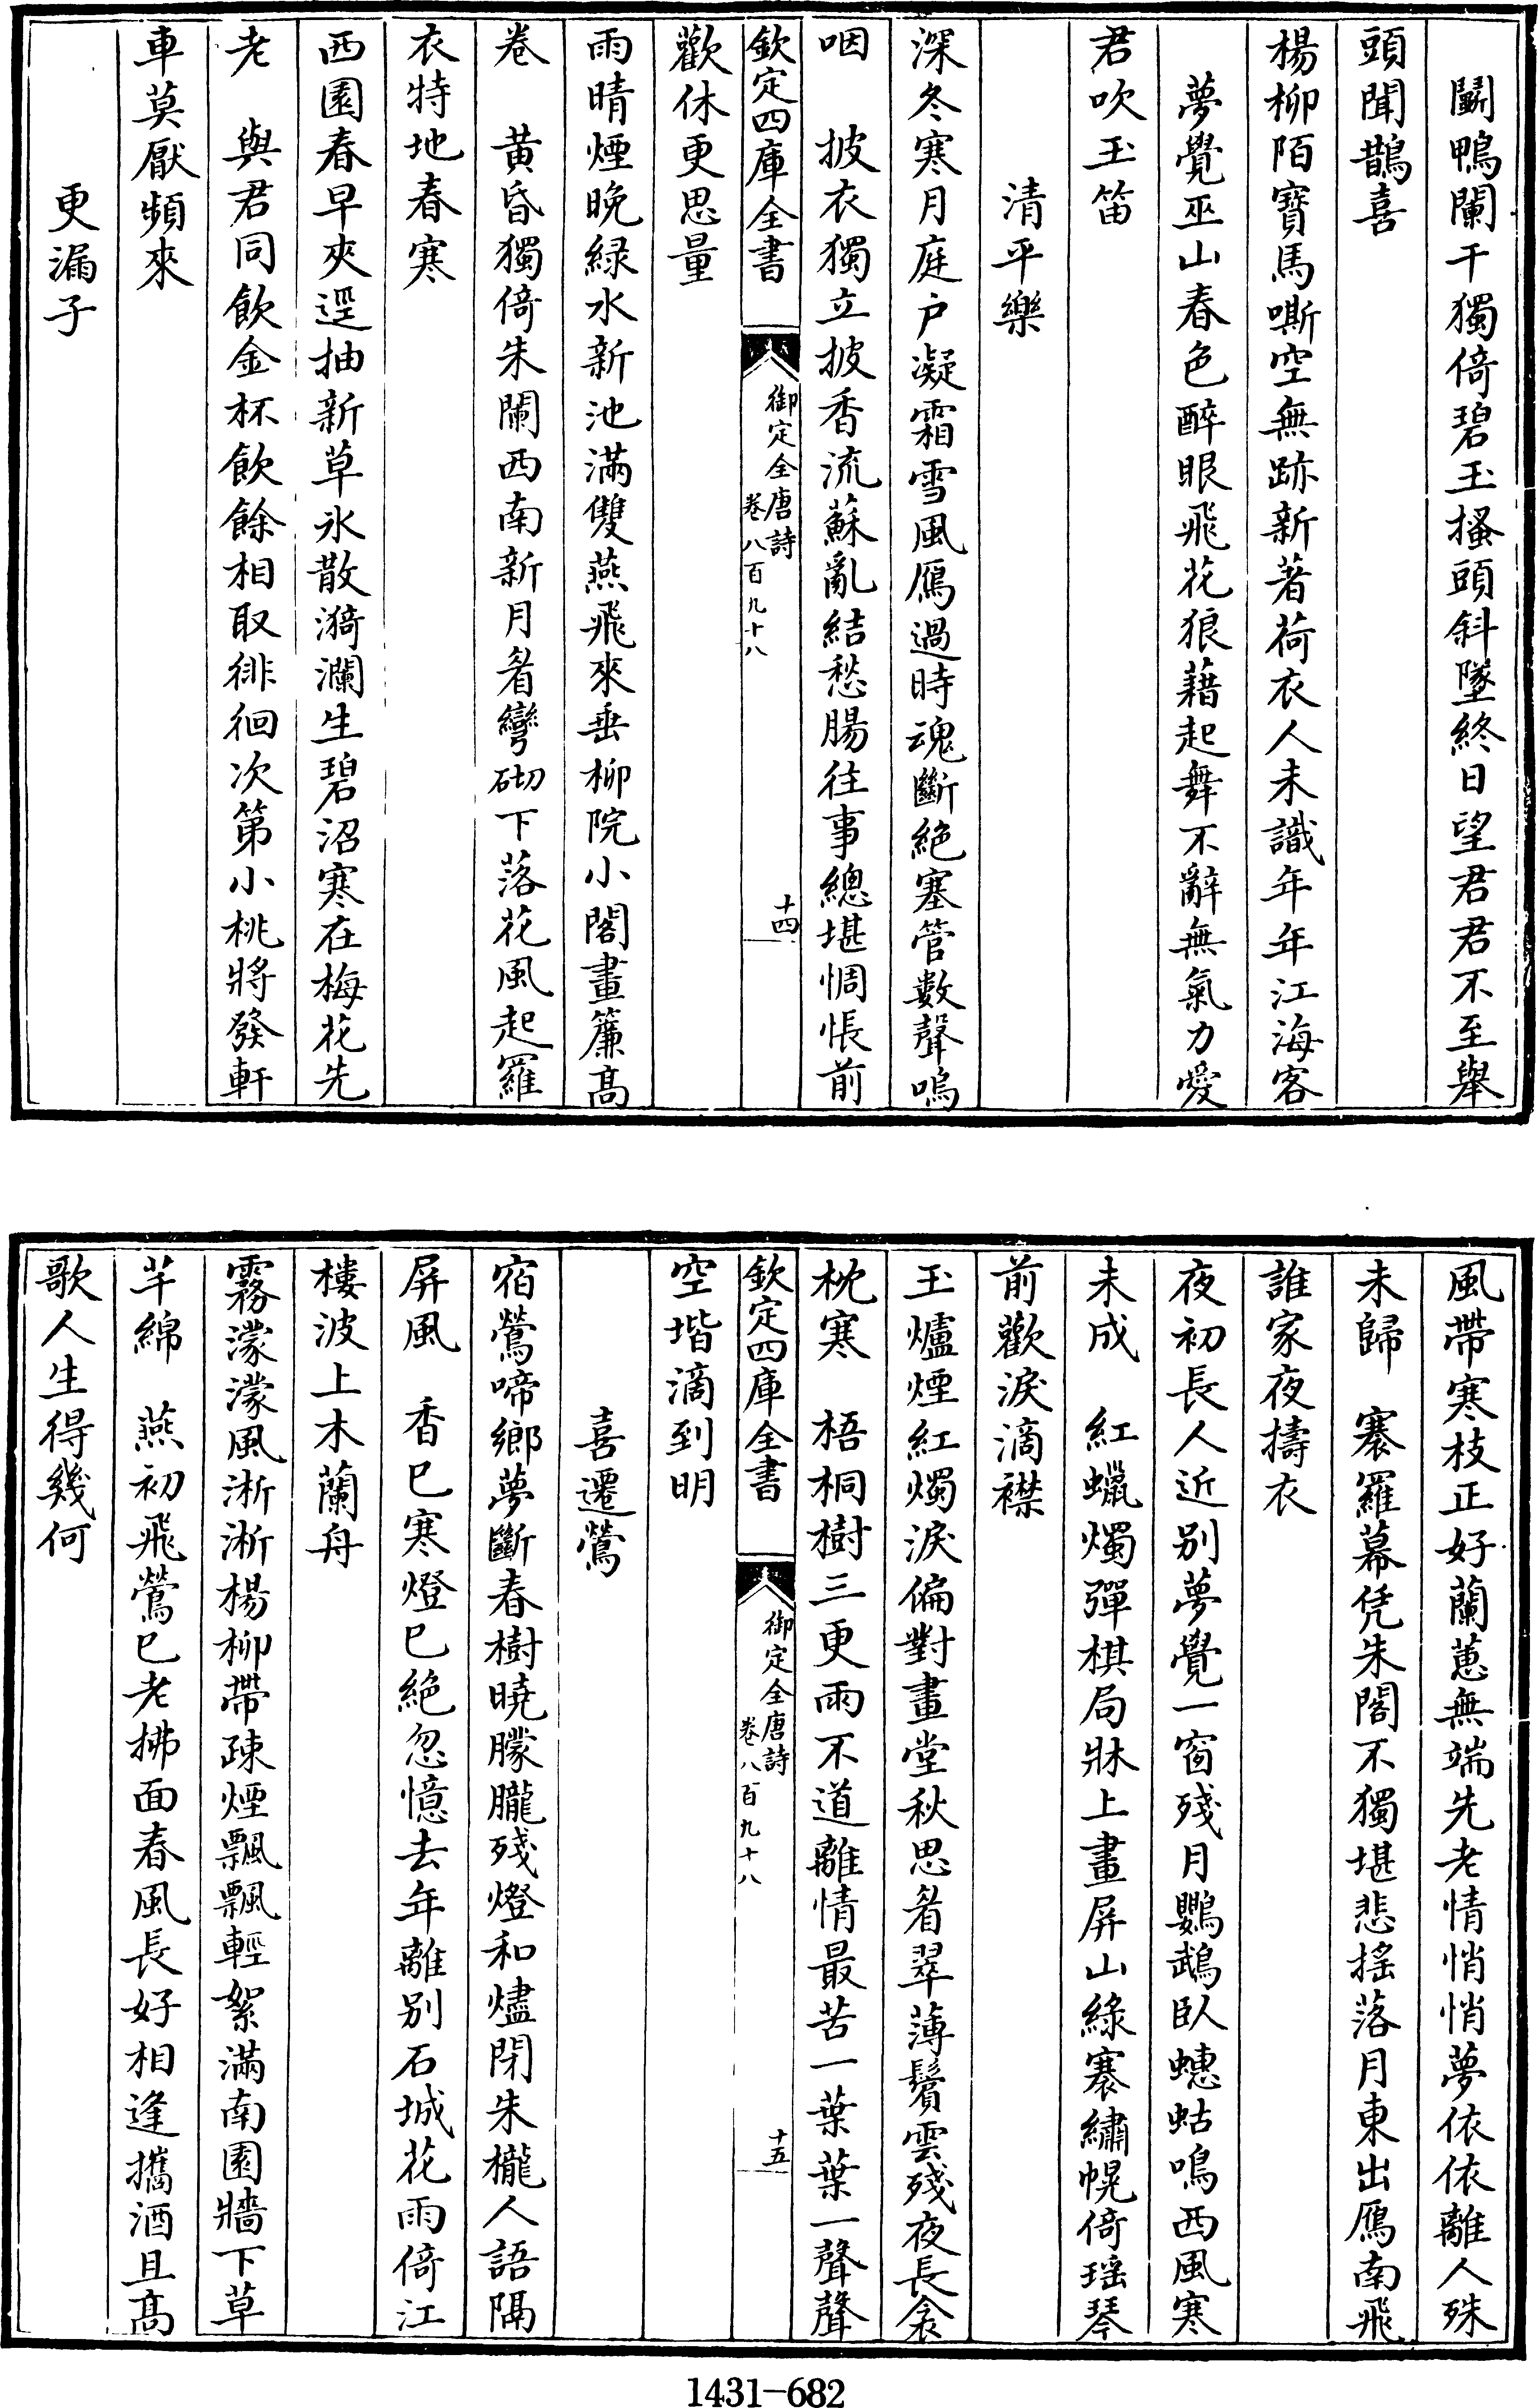 鬭鴨闌干獨倚碧玉搔頭斜墜終日望君君不至舉
頭聞鵲喜
楊柳陌寶馬嘶空無跡新著荷衣人未識年年江海客
夢覺巫山春色醉眼飛花狼藉起舞不辭無氣力愛
君吹玉笛
清平樂
深冬寒月庭户凝霜雪風鴈過時魂斷絶塞管數聲嗚
咽　披衣獨立披香流蘇亂結愁腸往事總堪惆悵前
欽定四庫全書
御定全唐詩
卷八百九十八
十四
歡休更思量
雨晴煙晚緑水新池滿雙燕飛來垂柳院小閣畫簾髙
卷　黄昏獨倚朱闌西南新月眉彎砌下落花風起羅
衣特地春寒
西園春早夾逕抽新草氷散漪瀾生碧沼寒在梅花先
老　與君同飲金杯飲餘相取徘徊次第小桃將發軒
車莫厭頻來
更漏子
風帶寒枝正好蘭蕙無端先老情悄悄夢依依離人殊
未歸　褰羅幕凭朱閣不獨堪悲搖落月東出鴈南飛
誰家夜擣衣
夜初長人近别夢覺一窗殘月鸚鵡臥蟪蛄鳴西風寒
未成　紅蠟燭彈棋局牀上畫屏山緑褰繡幌倚瑶琴
前歡淚滴襟
玉爐煙紅燭淚偏對畫堂秋思眉翠薄鬢雲殘夜長衾
枕寒　梧桐樹三更雨不道離情最苦一葉葉一聲聲
欽定四庫全書
御定全唐詩
卷八百九十八
十五
空堦滴到明
喜遷鶯
宿鶯啼鄉夢斷春樹曉朦朧殘燈和燼閉朱櫳人語隔
屏風　香已寒燈已絶忽憶去年離别石城花雨倚江
樓波上木蘭舟
霧濛濛風淅淅楊柳帶疎煙飄飄輕絮滿南園牆下草
芊綿　燕初飛鶯已老拂面春風長好相逢攜酒且髙
歌人生得幾何
1431-682